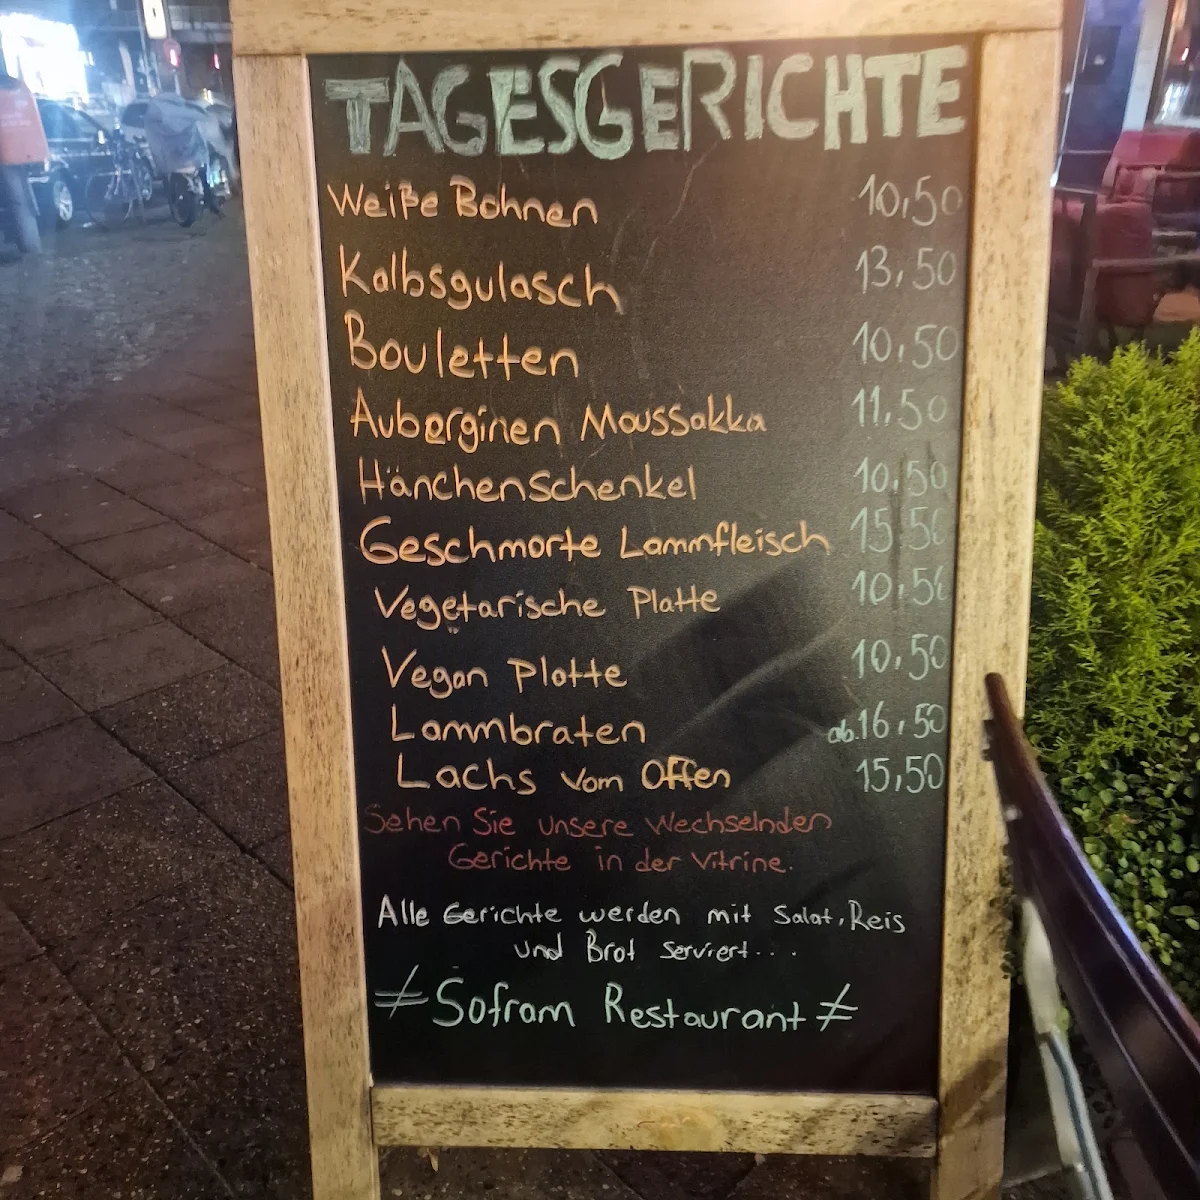 TAGESGERICHTE
Weiße Bohnen 10,50
Kalbsgulasch 13,50
Bouletten 10,50
Auberginen Moussakka 11,50
Hänchenschenkel 10,50
Geschmorte Lammfleisch 15,50
Vegetarische Platte 10,50
Vegan Platte 10,50
Lammbraten ab.16,50
Lachs vom Offen 15,50
Sehen Sie unsere Wechselnden
Gerichte in der Vitrine.
Alle Gerichte werden mit Salat, Reis
und Brot serviert....
≠ Sofram Restaurant ≠